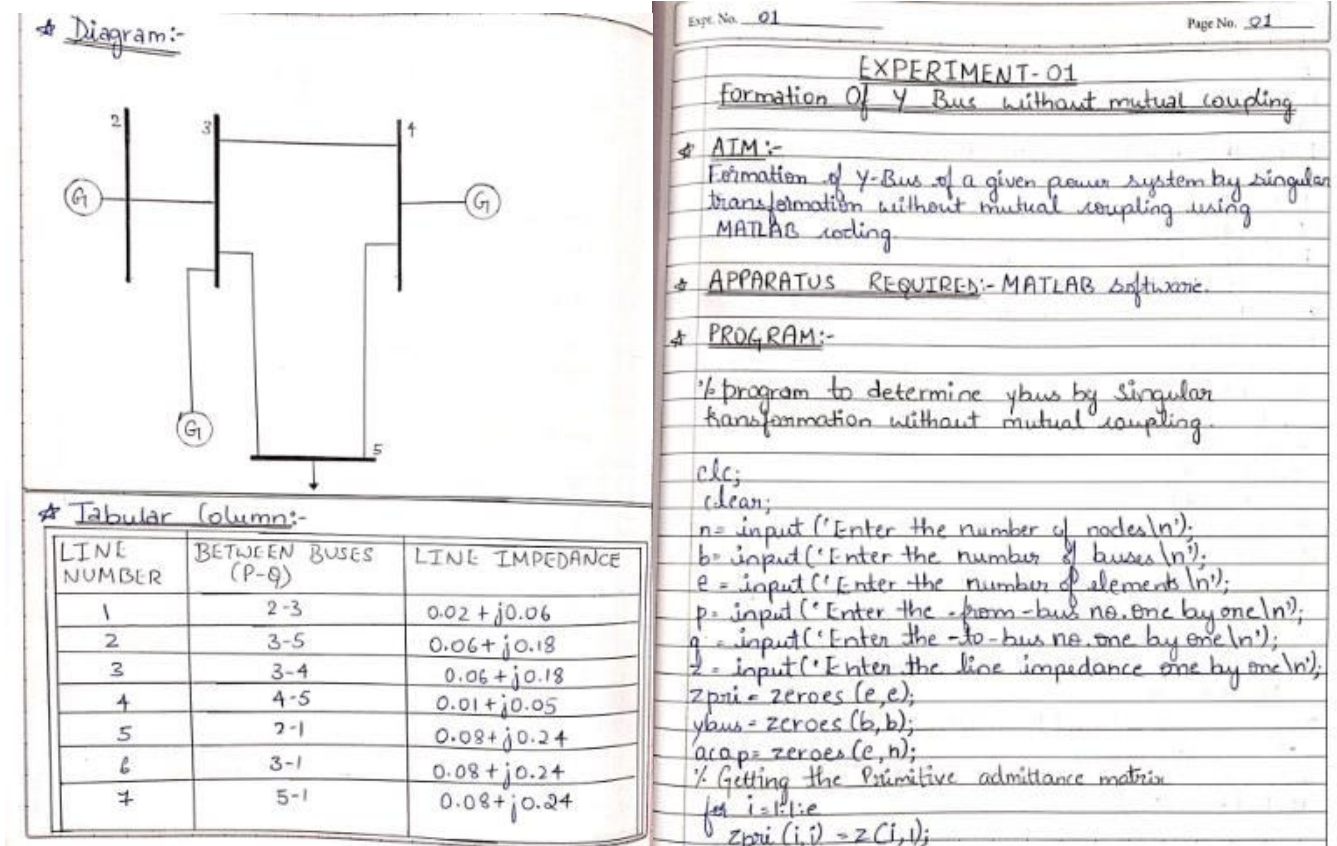 ☆ Diagram:-
2
3
4
G
G
G
5
☆ Tabular Column:-
LINE NUMBER BETWEEN BUSES (P-Q) LINE IMPEDANCE
1 2-3 0.02 + j0.06
2 3-5 0.06 + j0.18
3 3-4 0.06 + j0.18
4 4-5 0.01 + j0.05
5 2-1 0.08 + j0.24
6 3-1 0.08 + j0.24
7 5-1 0.08 + j0.24
Expt. No. 01 Page No. 01
EXPERIMENT-01
Formation Of Y Bus without mutual coupling
☆ AIM:-
Formation of Y-Bus of a given power system by singular
transformation without mutual coupling using
MATLAB coding.
☆ APPARATUS REQUIRED:- MATLAB software.
☆ PROGRAM:-
% program to determine ybus by Singular
transformation without mutual coupling.
clc;
clear;
n= input ('Enter the number of nodes\n');
b= input('Enter the number of buses\n');
e = input('Enter the number of elements\n');
p= input('Enter the -from-bus no.one by one\n');
q = input('Enter the -to-bus no.one by one\n');
z = input('Enter the line impedance one by one\n');
zpri = zeroes (e,e);
ybus = zeroes (b,b);
acap= zeroes (e,n);
% Getting the Primitive admittance matrix
for i=1:1:e
zpri (i,i) = z(i,1);